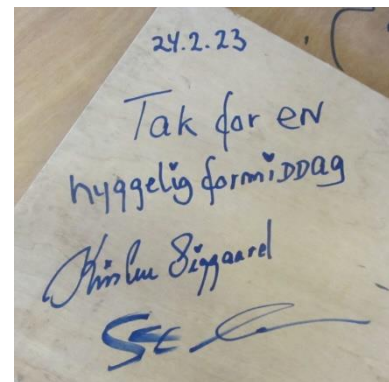 24.2.23
Tak for en
hyggelig formiddag
Kirsten Siggaard